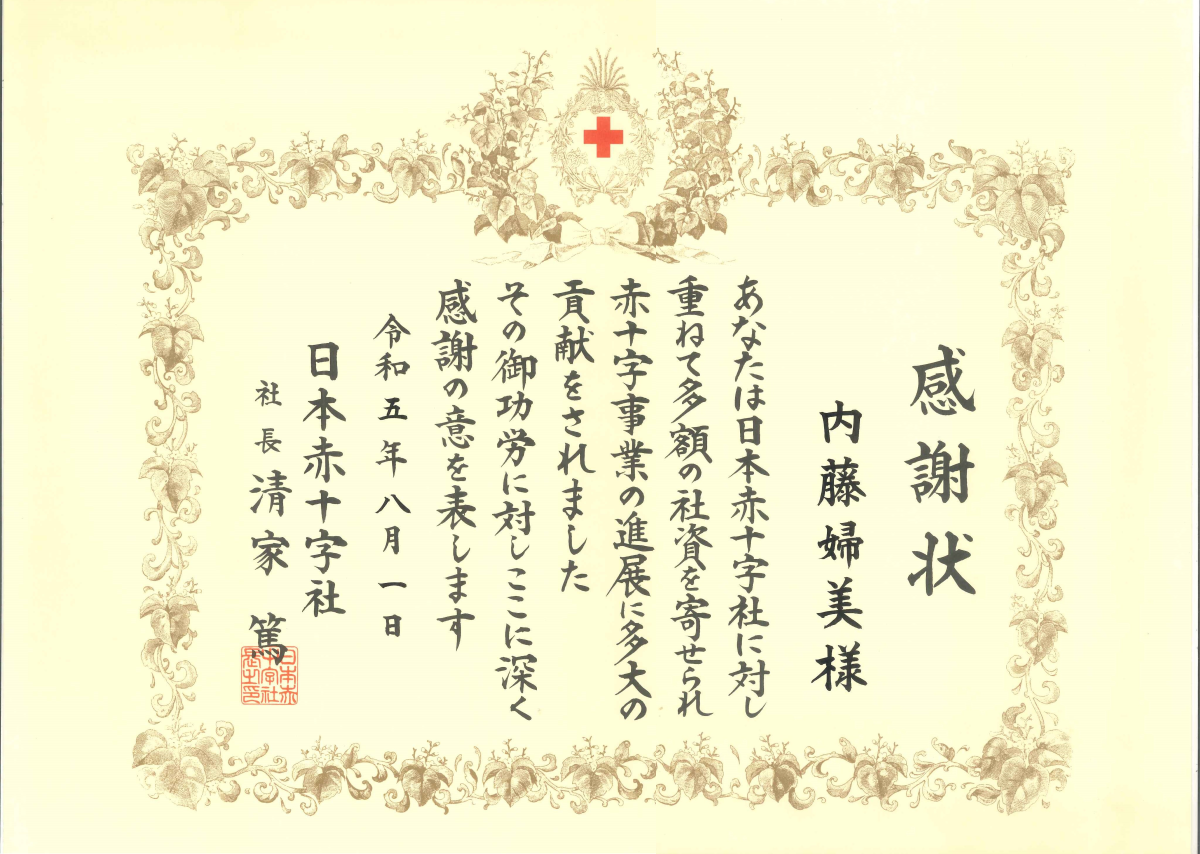 感謝状
内藤婦美様
あなたは日本赤十字社に対し
重ねて多額の社資を寄せられ
赤十字事業の進展に多大の
貢献をされました
その御功労に対しここに深く
感謝の意を表します
令和五年八月一日
日本赤十字社
社長 清家 篤
日本赤
十字社
長之印